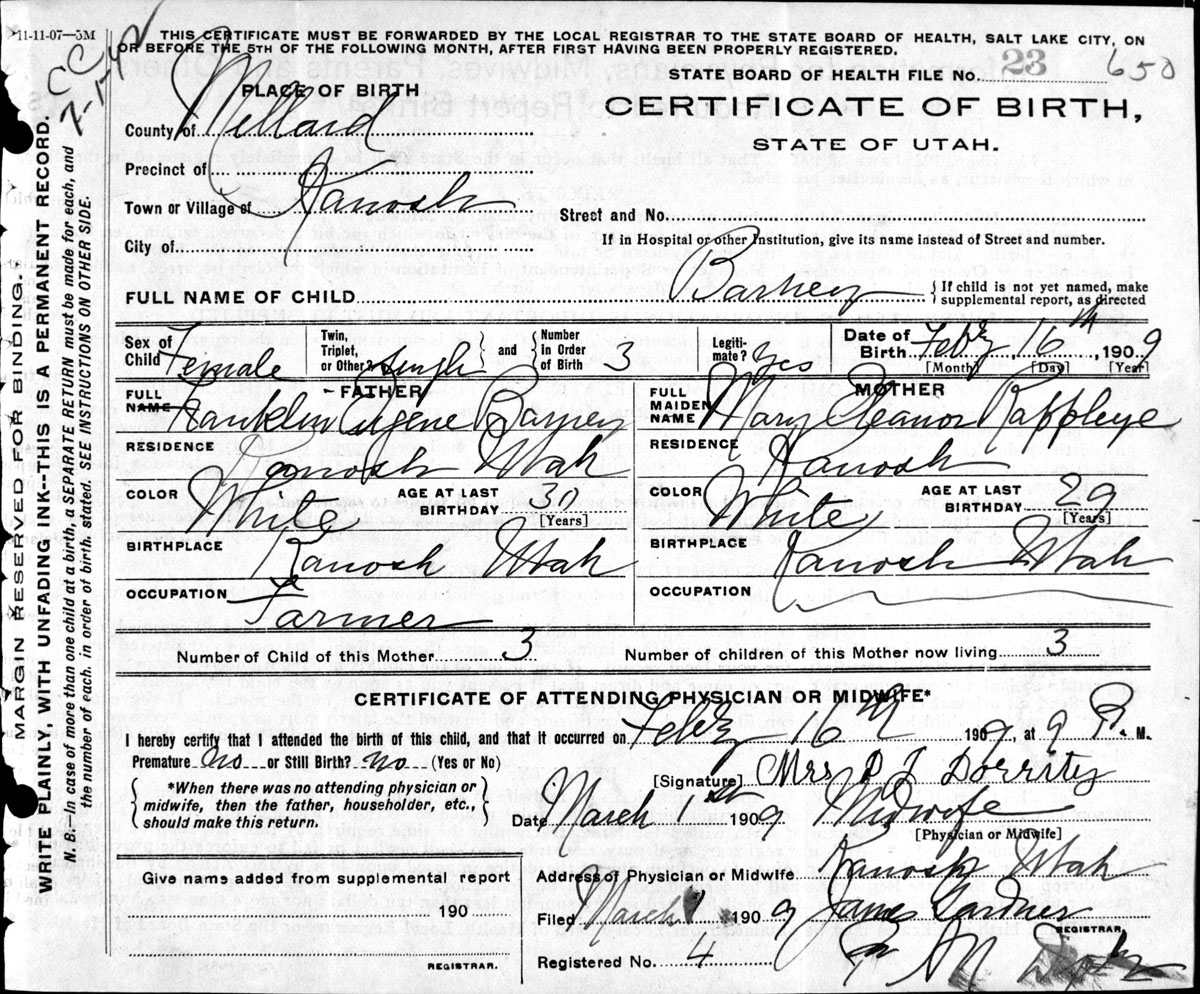 11-11-07—5M
THIS CERTIFICATE MUST BE FORWARDED BY THE LOCAL REGISTRAR TO THE STATE BOARD OF HEALTH, SALT LAKE CITY, ON
OR BEFORE THE 5TH OF THE FOLLOWING MONTH, AFTER FIRST HAVING BEEN PROPERLY REGISTERED.
STATE BOARD OF HEALTH FILE No. 23 650
PLACE OF BIRTH
CERTIFICATE OF BIRTH,
STATE OF UTAH.
County of Millard
Precinct of
Town or Village of Kanosh
Street and No.
City of
If in Hospital or other Institution, give its name instead of Street and number.
FULL NAME OF CHILD Barney { If child is not yet named, make
supplemental report, as directed
Sex of Child Female
Twin, Triplet, or Other? Single } and { Number in Order of Birth 3
Legiti-mate? Yes
Date of Birth Feby 16th, 1909
[Month] [Day] [Year]
FATHER
FULL NAME Franklin Eugene Barney
RESIDENCE Kanosh Utah
COLOR White
AGE AT LAST BIRTHDAY 30
[Years]
BIRTHPLACE Kanosh Utah
OCCUPATION Farmer
MOTHER
FULL MAIDEN NAME Mary Eleanor Rappleye
RESIDENCE Kanosh
COLOR White
AGE AT LAST BIRTHDAY 29
[Years]
BIRTHPLACE Kanosh Utah
OCCUPATION
Number of Child of this Mother 3
Number of children of this Mother now living 3
CERTIFICATE OF ATTENDING PHYSICIAN OR MIDWIFE*
I hereby certify that I attended the birth of this child, and that it occurred on Feby 16th 1909, at 9 P. M.
Premature no or Still Birth? no (Yes or No)
{ *When there was no attending physician or
midwife, then the father, householder, etc.,
should make this return. }
[Signature] Mrs Dorrity
Date March 1st 1909 Midwife
[Physician or Midwife]
Address of Physician or Midwife Kanosh Utah
Give name added from supplemental report
190
REGISTRAR.
Filed March 1909 James Gardner
REGISTRAR.
Registered No. 4
MARGIN RESERVED FOR BINDING.
WRITE PLAINLY, WITH UNFADING INK--THIS IS A PERMANENT RECORD.
N. B.—In case of more than one child at a birth, a SEPARATE RETURN must be made for each, and
the number of each, in order of birth, stated. SEE INSTRUCTIONS ON OTHER SIDE.